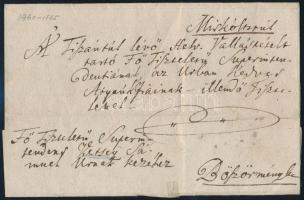 1780-1785
Miskóltzrúl
A Tiszántúl lévő Helv. Vallástételt
tartó Fő Tiszteletű Superinten-
dentiának, az Urban Kedves
Atyánkfiainak illendő Tisz-
lelettel
Fő Tiszteletű Superin-
tendens Szetsey Sá-
muel Urnak kezéhez
Böszörménybe